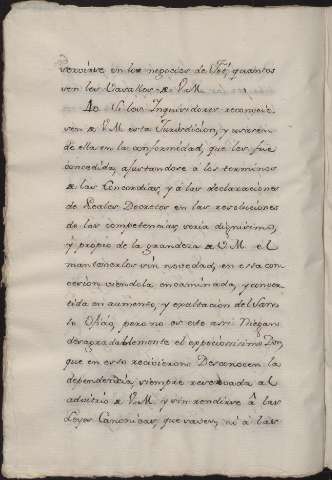 servirse en los negocios de Fee, quantos
son los Vasallos de V.M.
40 Si los Inquisidores reconocie
sen a V.M. esta Jurisdicion, y usasen
de ella en la conformidad, que les fue
concedida, ajustandose á los terminos
de las Concordias, y á las declaraciones
de Reales Decretos en las resoluciones
de las competencias, seria dignisimo,
y propio de la grandeza de V.M. el
mantenerlos sin novedad, en esta con
cesion viendola encaminada, y conver
tida en aumento, y exaltacion del Santo
Ofizio, pero no es esto assi Niegan
desagradablemente el
que en esto recivieron Desconocen la
dependencia, siempre reservada al
advitrio de V.M. y sin rendirse á las
Leyes Canonicas, que saven, ni á las